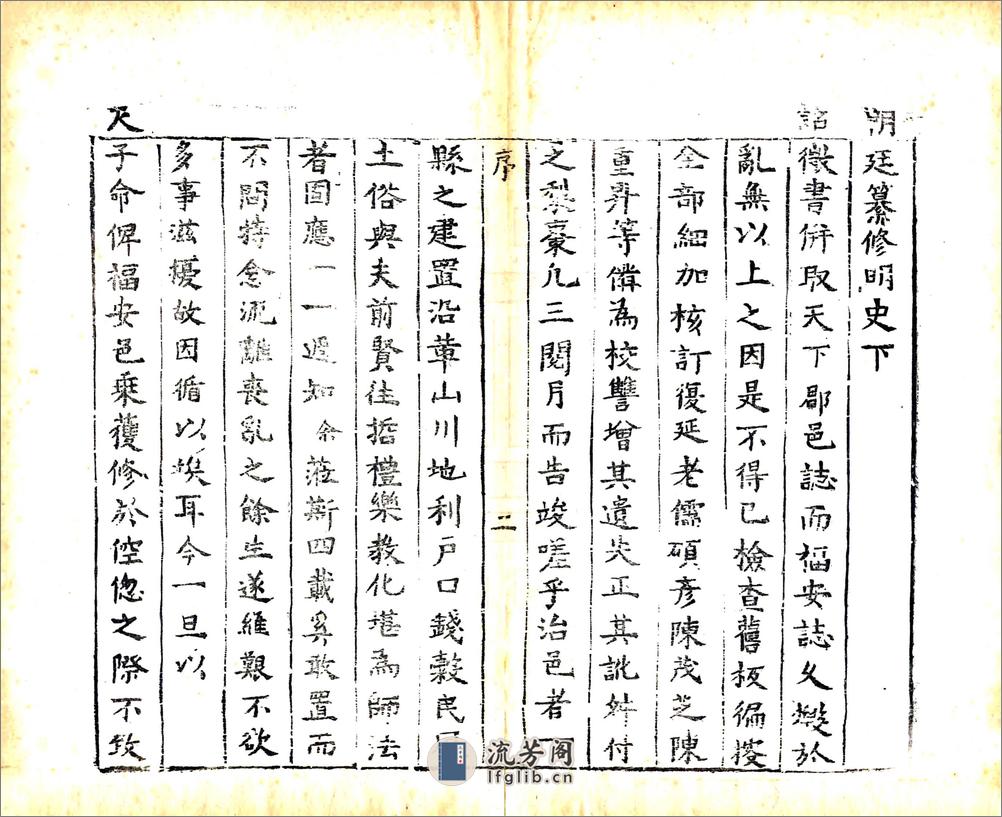 明廷纂修明史下
詔徵書併取天下郡邑誌而福安誌久燬於
亂無以上之因是不得已檢查舊板徧搜
全部細加核訂復延老儒碩彥陳茂芝陳
重昇等儕為校讐增其遺失正其訛舛付
之梨棗凡三閱月而告竣嗟乎治邑者
序 二
縣之建置沿革山川地利戶口錢穀民
土俗與夫前賢往哲禮樂教化堪為師法
者固應一一週知余蒞斯四載奚敢置而
不問特念流離喪亂之餘生遂維艱不欲
多事滋擾故因循以埃耳今一旦以
天子命俾福安邑乘獲修於倥偬之際不致
流芳阁
lfglib.cn